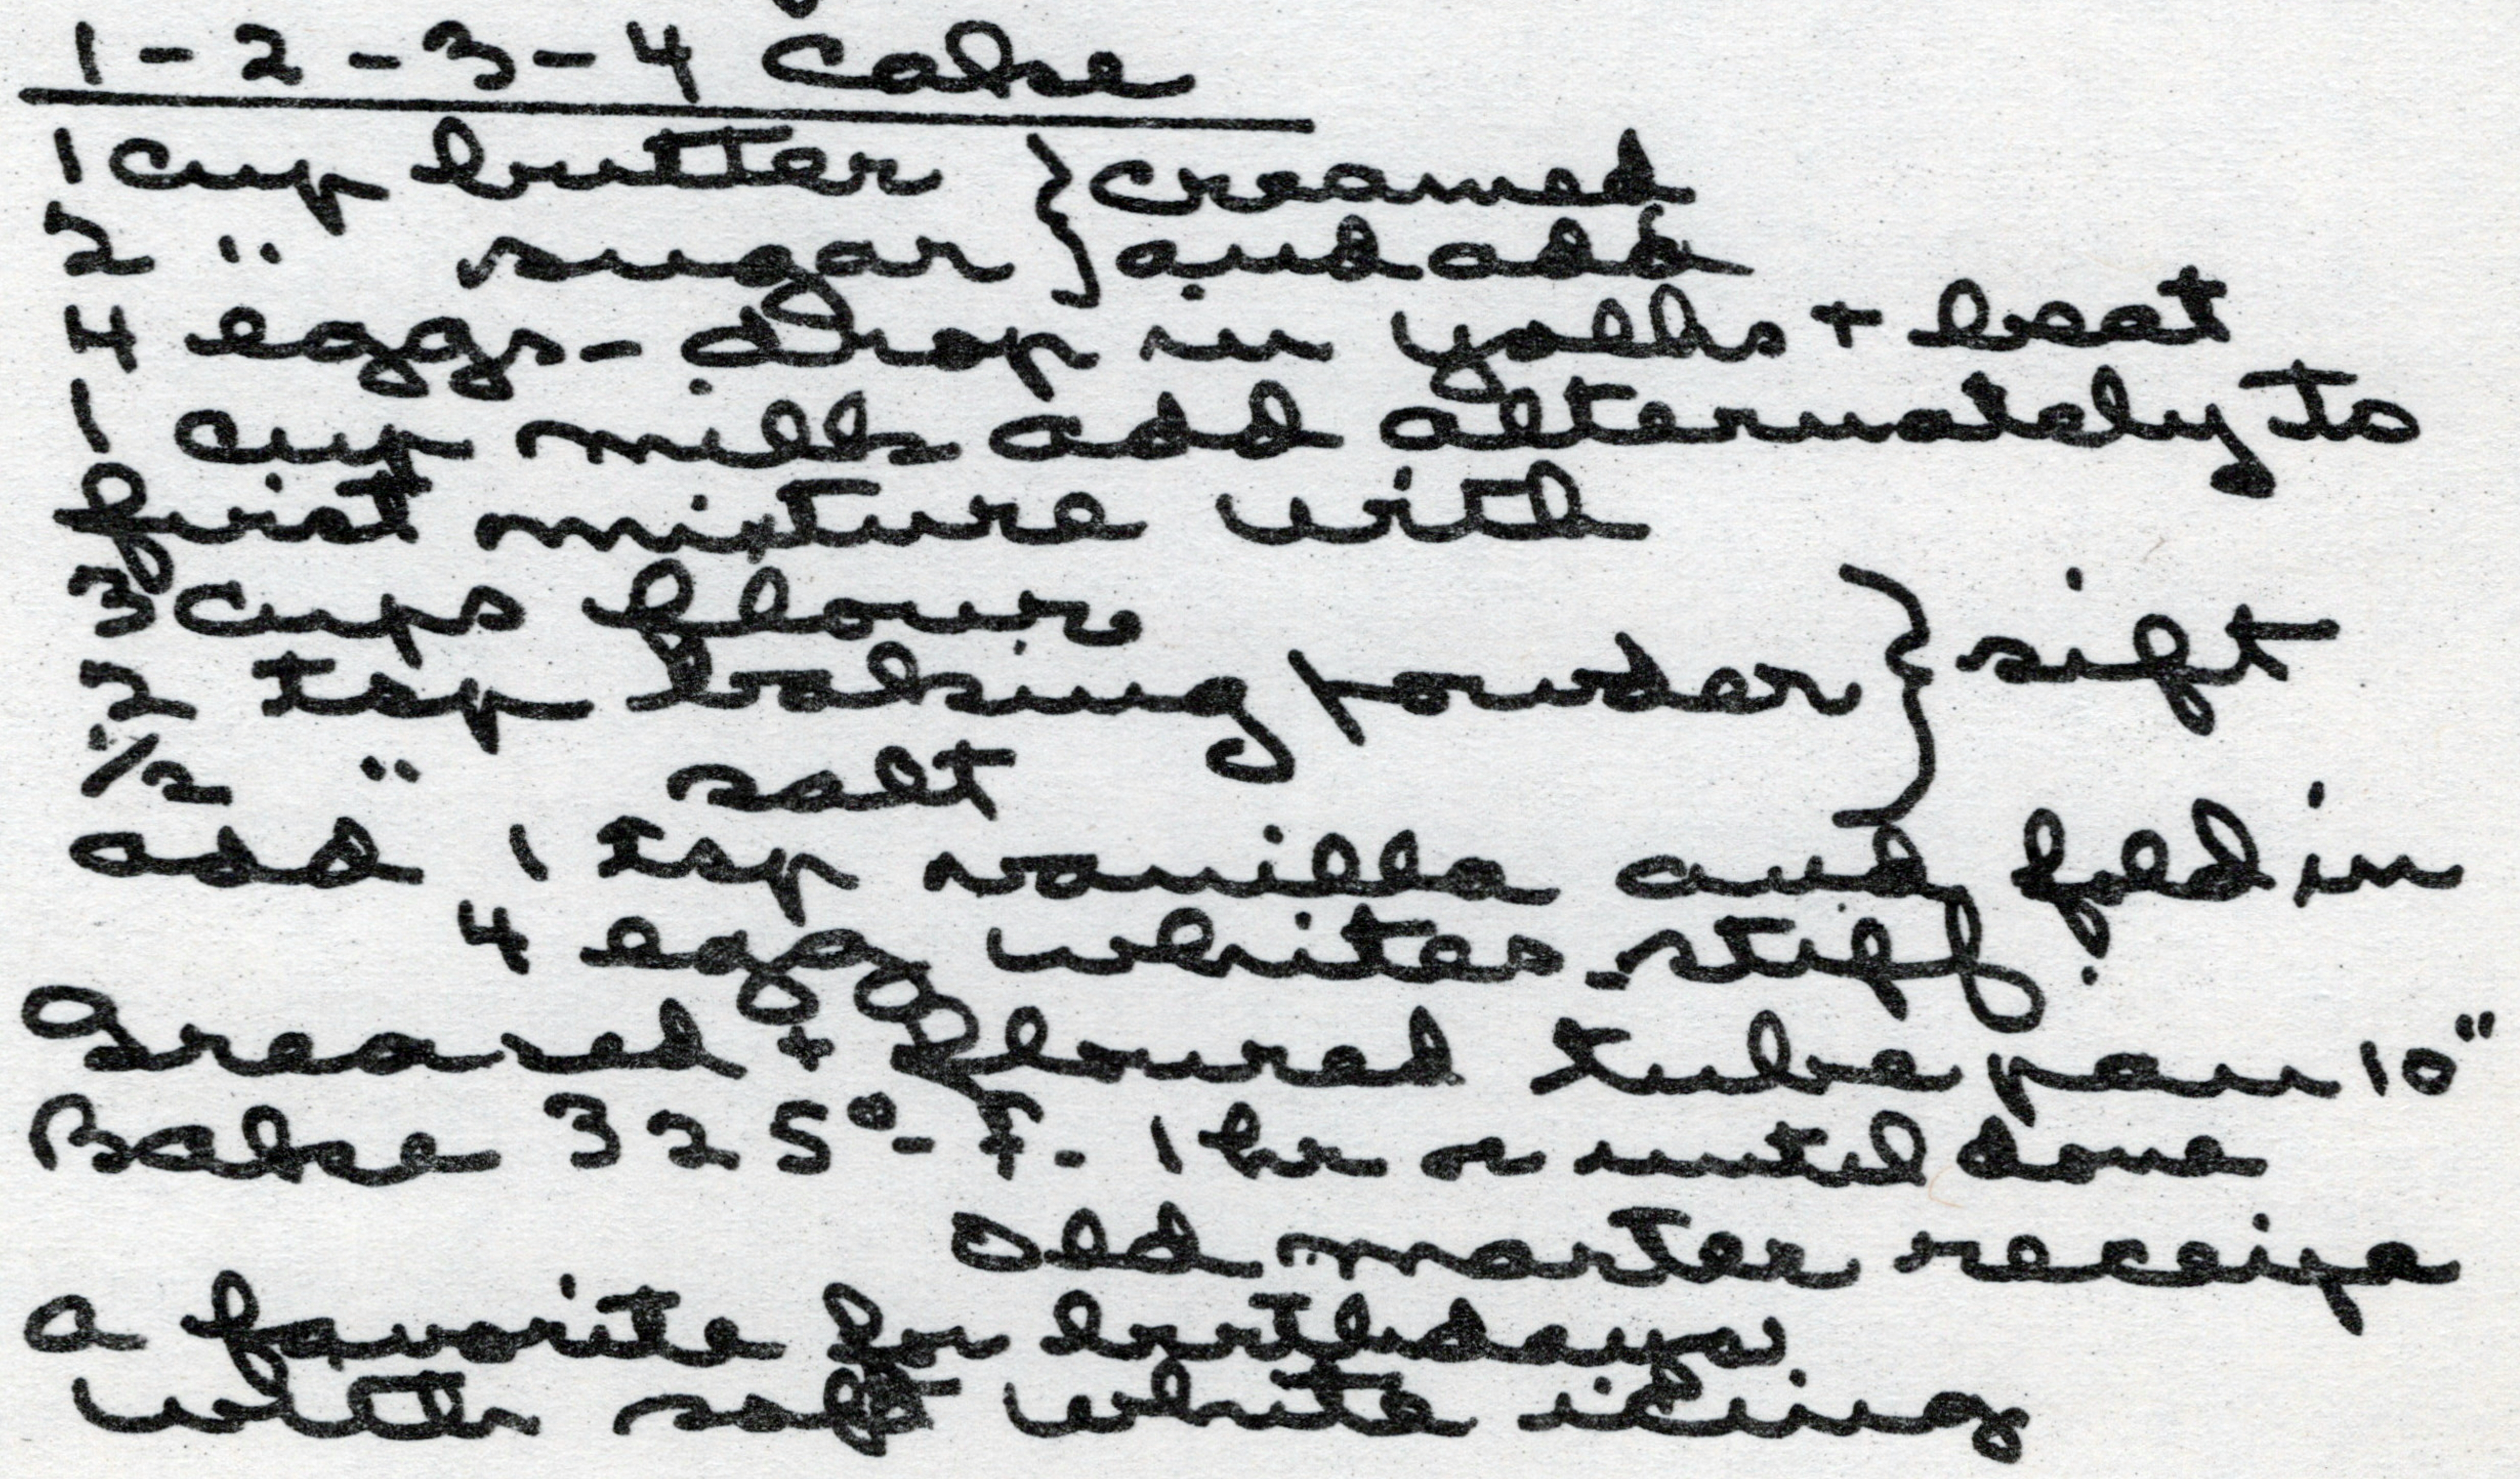 1-2-3-4 Cake
1 cup butter } creamed
2 " sugar } and add
4 eggs - drop in yolks + beat
1 cup milk add alternately to
first mixture with
3 cups flour
2 tsp baking powder } sift
1/2 " salt
add 1 tsp vanilla and fold in
4 egg whites - stiff.
Greased + floured tube pan 10"
Bake 325° - F. 1 hr or until done
Old marter receipe
a favorite for birthdays
with soft white icing